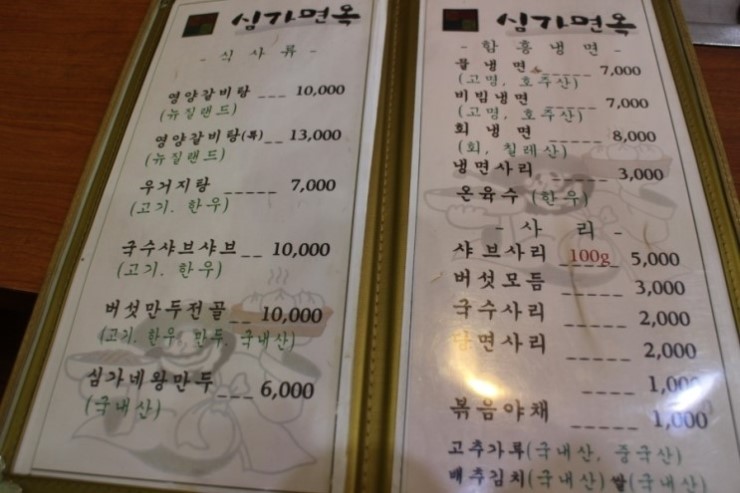 심가면옥
- 식 사 류 -
영양갈비탕 ___ 10,000
(뉴질랜드)
영양갈비탕(특) ___ 13,000
(뉴질랜드)
우거지탕 _____ 7,000
(고기. 한우)
국수샤브샤브 __ 10,000
(고기. 한우)
버섯만두전골 __ 10,000
(고기. 한우 만두. 국내산)
심가네왕만두 ___ 6,000
(국내산)
심가면옥
- 함 흥 냉 면 -
물 냉 면 _____ 7,000
(고명, 호주산)
비빔냉면 _____ 7,000
(고명, 호주산)
회 냉 면 _____ 8,000
(회, 칠레산)
냉면사리 _____ 3,000
온육수 (한우)
- 사 리 -
샤브사리 100g 5,000
버섯모듬 _____ 3,000
국수사리 _____ 2,000
당면사리 _____ 2,000
_____ 1,000
볶음야채 _____ 1,000
고추가루(국내산, 중국산)
배추김치(국내산) 쌀(국내산)